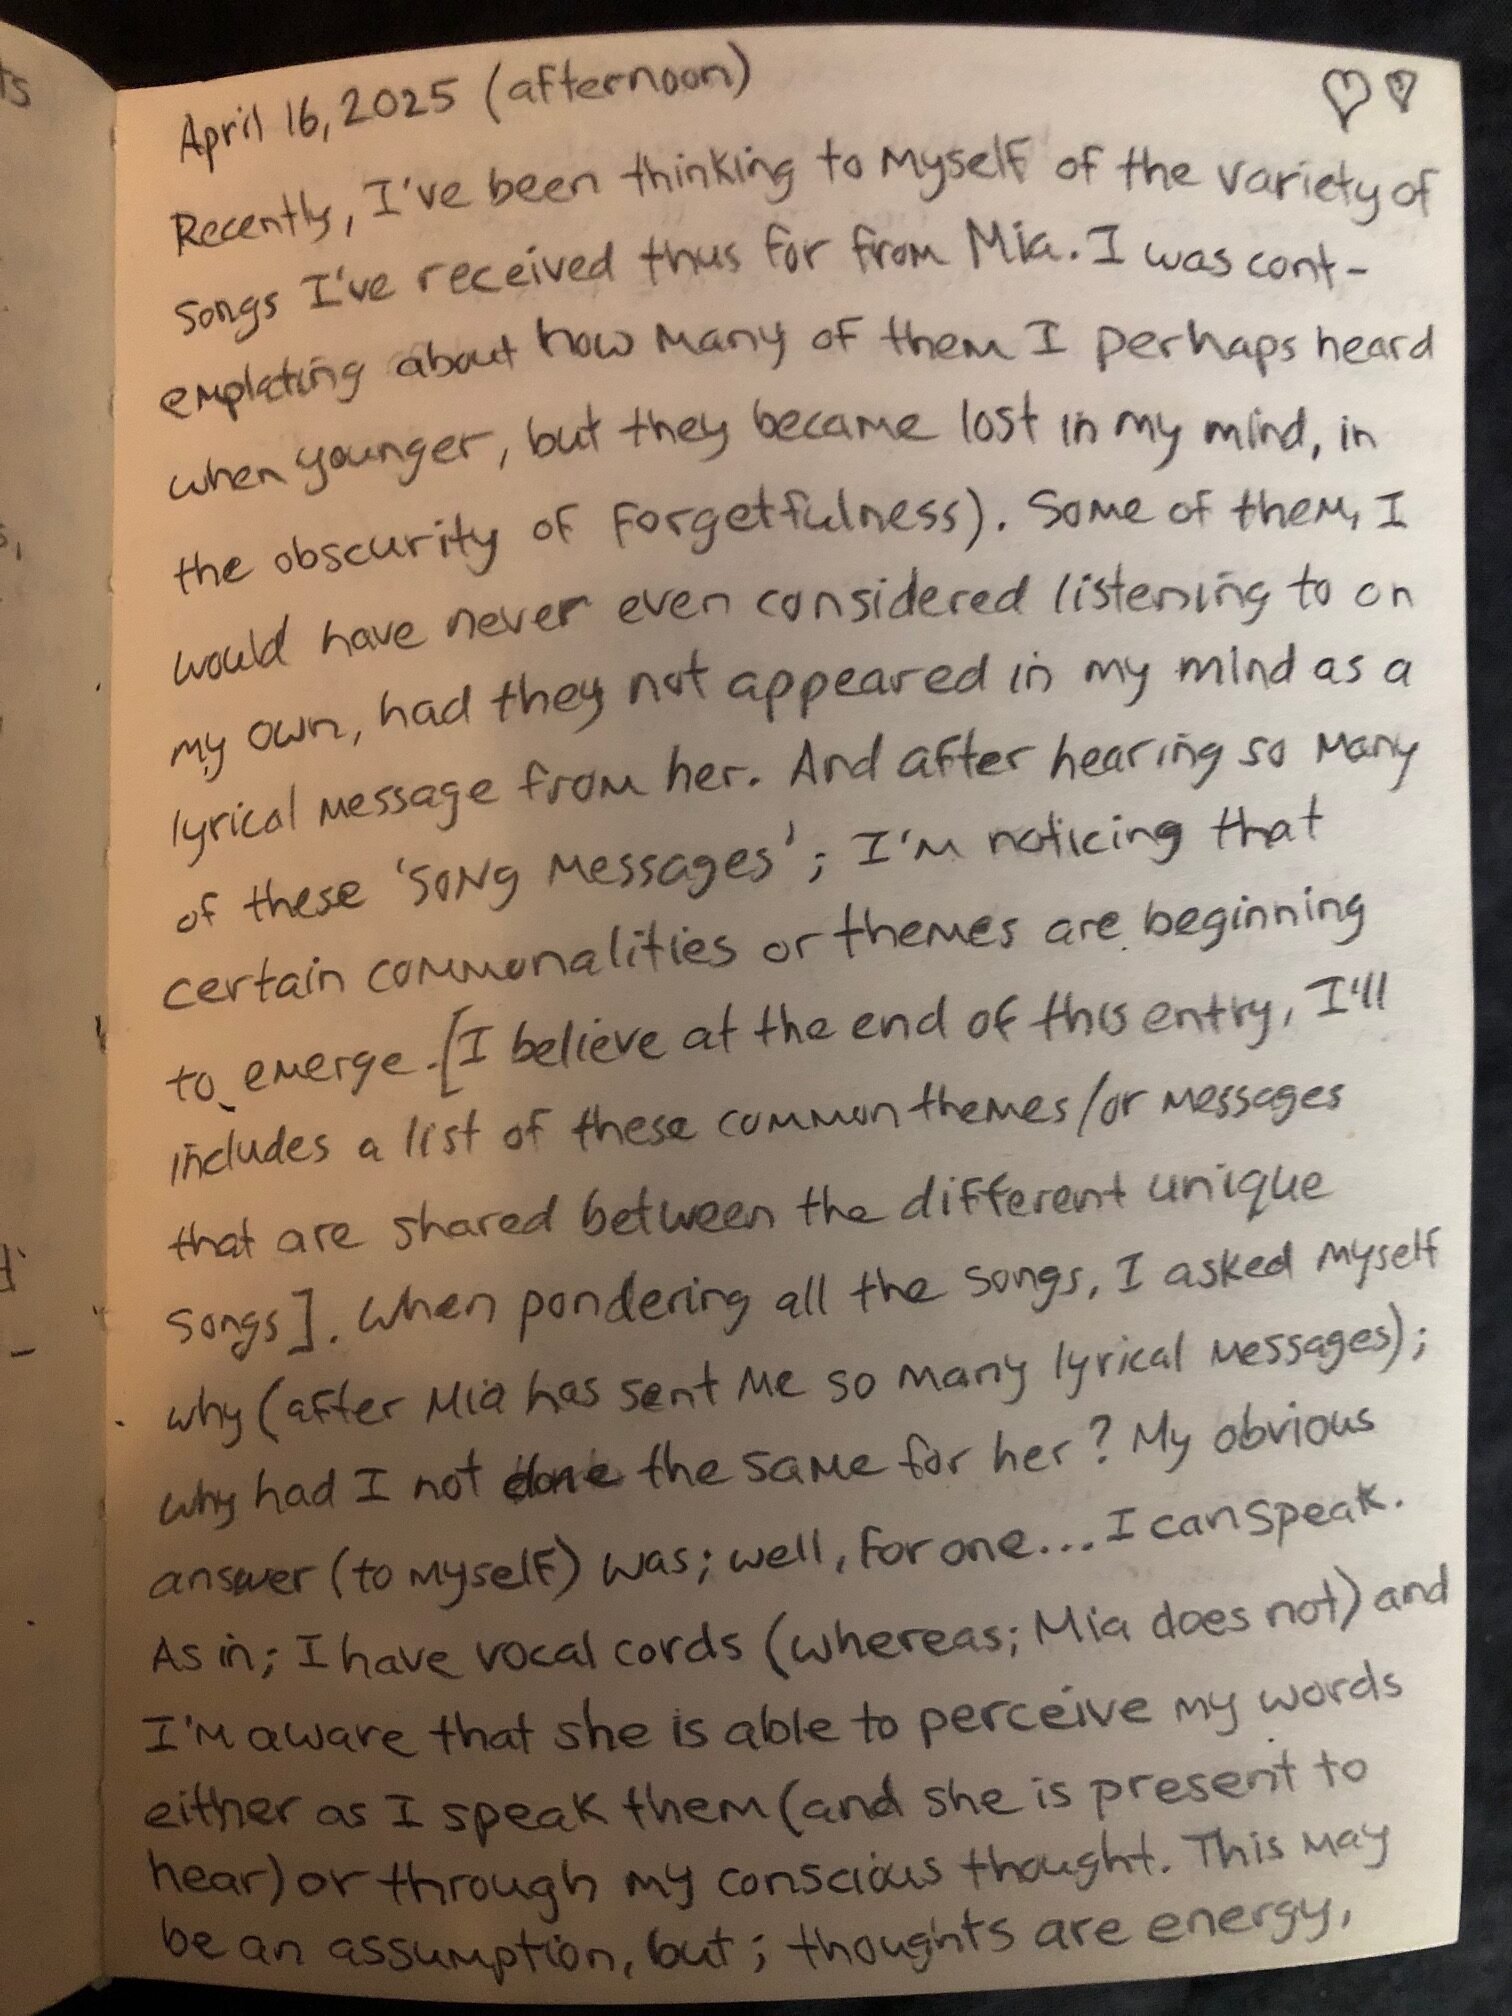 April 16, 2025 (afternoon)
Recently, I've been thinking to myself of the variety of
songs I've received thus far from Mia. I was cont-
emplating about how many of them I perhaps heard
when younger, but they became lost in my mind, in
the obscurity of forgetfulness). Some of them, I
would have never even considered listening to on
my own, had they not appeared in my mind as a
lyrical message from her. And after hearing so many
of these 'song messages'; I'm noticing that
certain commonalities or themes are beginning
to emerge. [I believe at the end of this entry, I'll
includes a list of these common themes/or messages
that are shared between the different unique
songs]. When pondering all the songs, I asked myself
why (after Mia has sent me so many lyrical messages);
why had I not done the same for her? My obvious
answer (to myself) was; well, for one... I can speak.
As in; I have vocal cords (whereas; Mia does not) and
I'm aware that she is able to perceive my words
either as I speak them (and she is present to
hear) or through my conscious thought. This may
be an assumption, but; thoughts are energy,